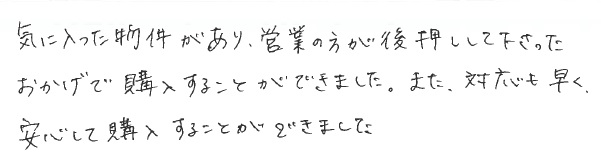 気に入った物件があり、営業の方が後押しして下さった
おかげで購入することができました。また、対応も早く、
安心して購入することができました